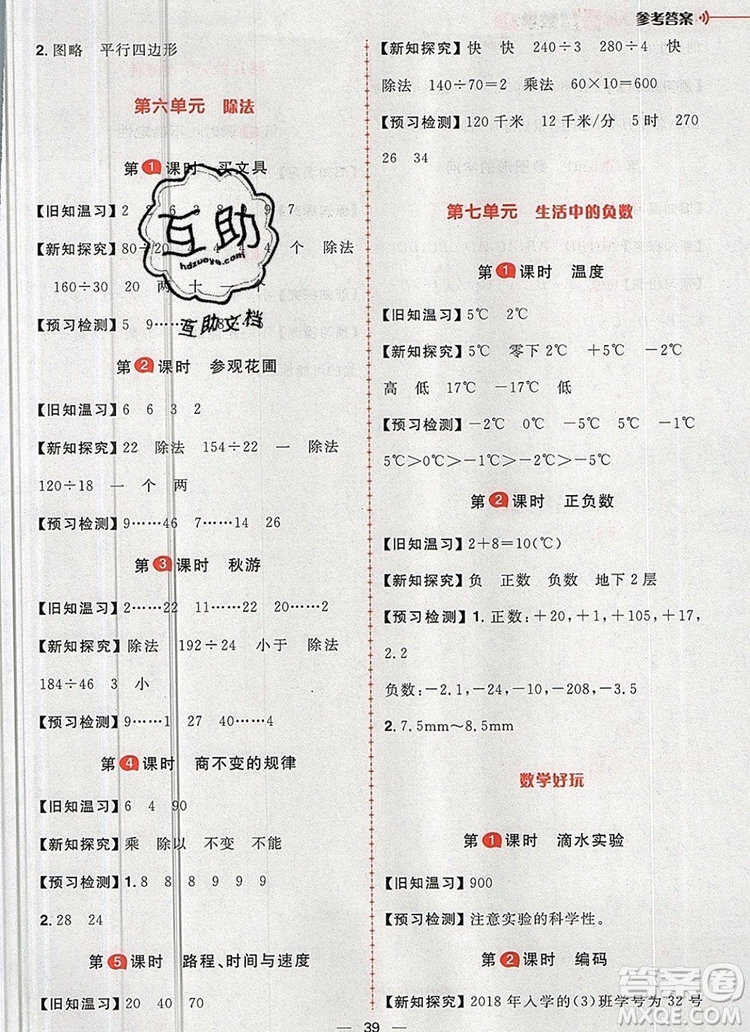 参考答案
2. 图略 平行四边形
第六单元 除法
第1课时 买文具
【旧知温习】2 8 9 7
【新知探究】80÷20 4 个 除法
160÷30 20 两 十 一
【预习检测】5 9…… 8
第2课时 参观花圃
【旧知温习】6 6 3 2
【新知探究】22 除法 154÷22 一 除法
120÷18 一 个 两
【预习检测】9……46 7……14 26
第3课时 秋游
【旧知温习】2……22 11……22 22……2
【新知探究】除法 192÷24 小于 除法
184÷46 3 小
【预习检测】9……1 4……21
第4课时 商不变的规律
【旧知温习】6 4 90
【新知探究】乘 除以 不变 不能
【预习检测】1.8 8 8 8 9 9
2. 28 24
第5课时 路程、时间与速度
【旧知温习】20 40 70
【新知探究】快 快 240÷3 280÷4 快
除法 140÷70=2 乘法 60×10=600
【预习检测】120千米 12千米/分 5时 270
26 34
第七单元 生活中的负数
第1课时 温度
【旧知温习】5℃ 2℃
【新知探究】5℃ 零下2℃ +2℃ -2℃
高 低 17℃ -17℃ 低
【预习检测】-2℃ 0℃ -5℃ 5℃ -2℃
5℃>0℃>-2℃>-5℃
第2课时 正负数
【旧知温习】2+8=10(℃)
【新知探究】负 正数 负数 地下2层
【预习检测】1. 正数：+20，+1，+100，+5，
2.2
负数：-2，-10，-208，-3.5
2. 7.5mm～8.5mm
数学好玩
第1课时 滴水实验
【旧知温习】900
【预习检测】注意实验的科学性。
第2课时 编码
【新知探究】2018年入学的(3)班学号为32号
39
互助
hdzuoye.com
互助文档
答案圈
MXQE.COM